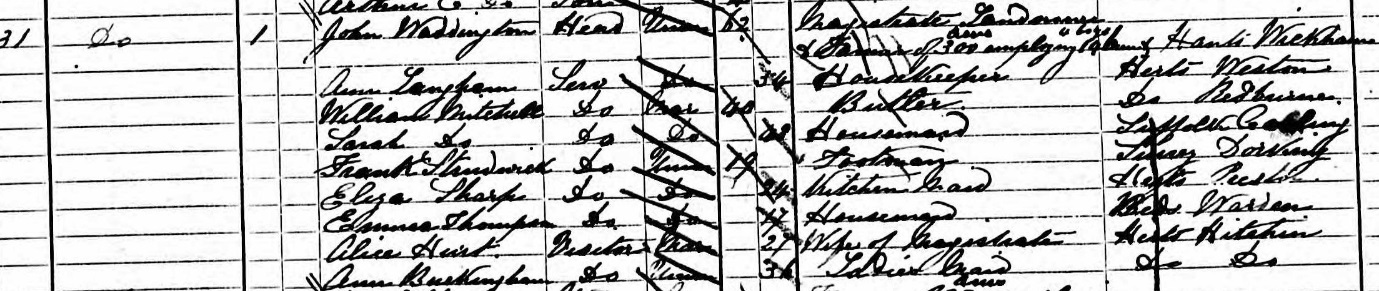 Arthur C Do Son
31 Do 1 John Waddington Head Unm 62 Magistrate Landowner
& Farmer of 300 acres employing & Hants Wickham
Ann Langham Serv Do 34 Housekeeper Herts Weston
William Mitchell Do Mar 40 Butler Do Redburne
Sarah Do Do Do 48 Housemaid Suffolk
Frank Strudwick Do Unm 19 Footman Surrey Dorking
Eliza Sharp Do Do 24 Kitchen Maid Herts Preston
Emma Thompson Do Do 17 Housemaid Beds Warden
Alice Hurst Visitor Mar 27 Wife of Magistrate Herts Hitchin
Ann Buckingham Do Unm 36 Ladies Maid Do Do
acres